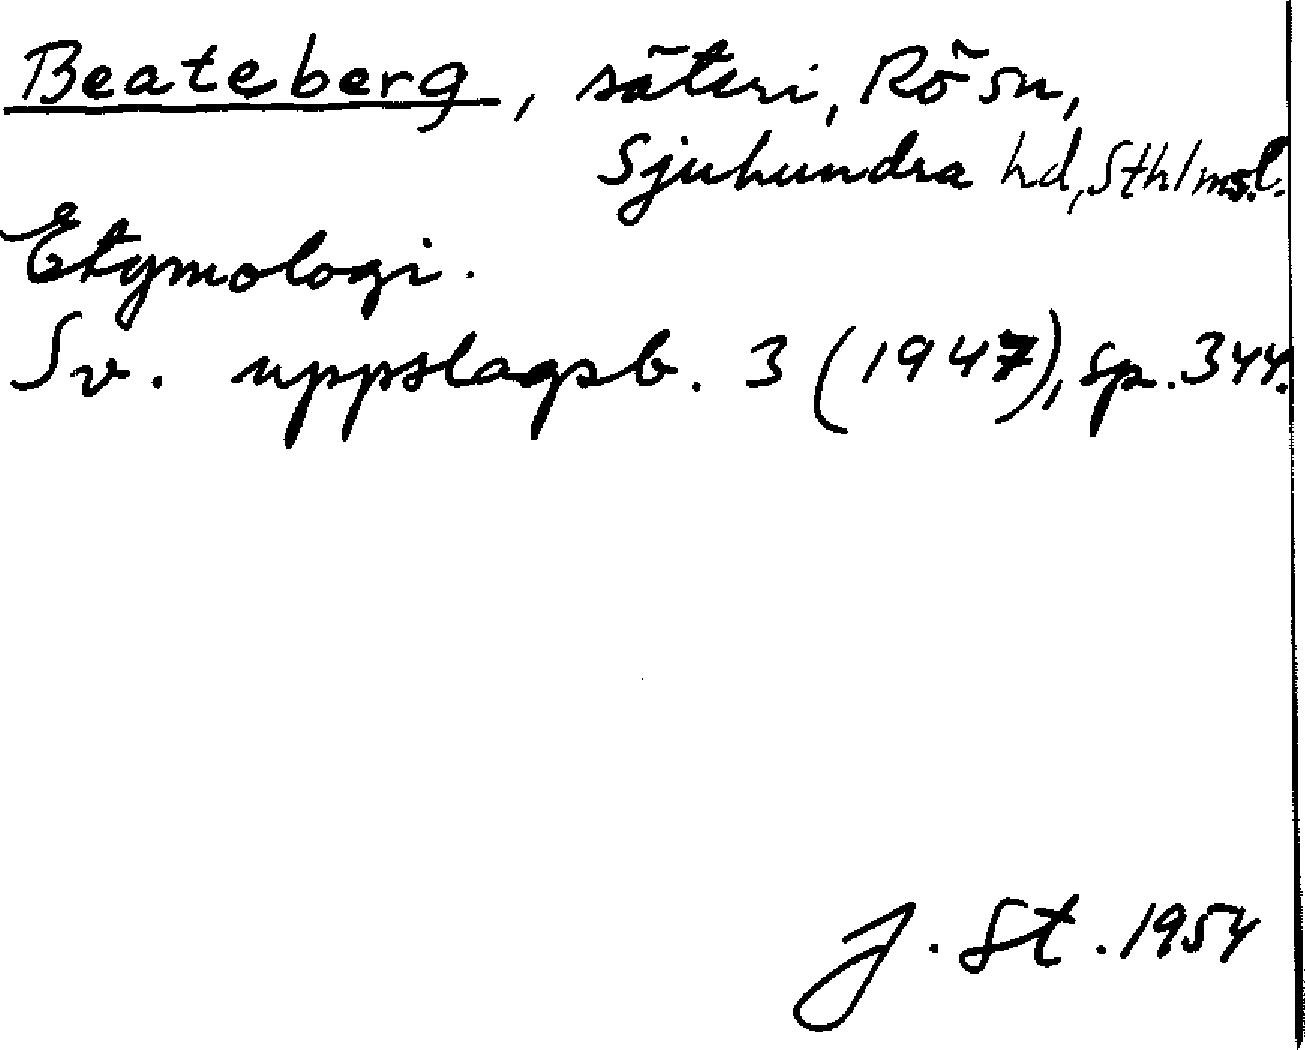 Beateberg, säteri, Rö sn,
Sjuhundra hd, Sthlms l.
Etymologi.
Sv. uppslagsb. 3 (1947), sp. 344.
J. St. 1954